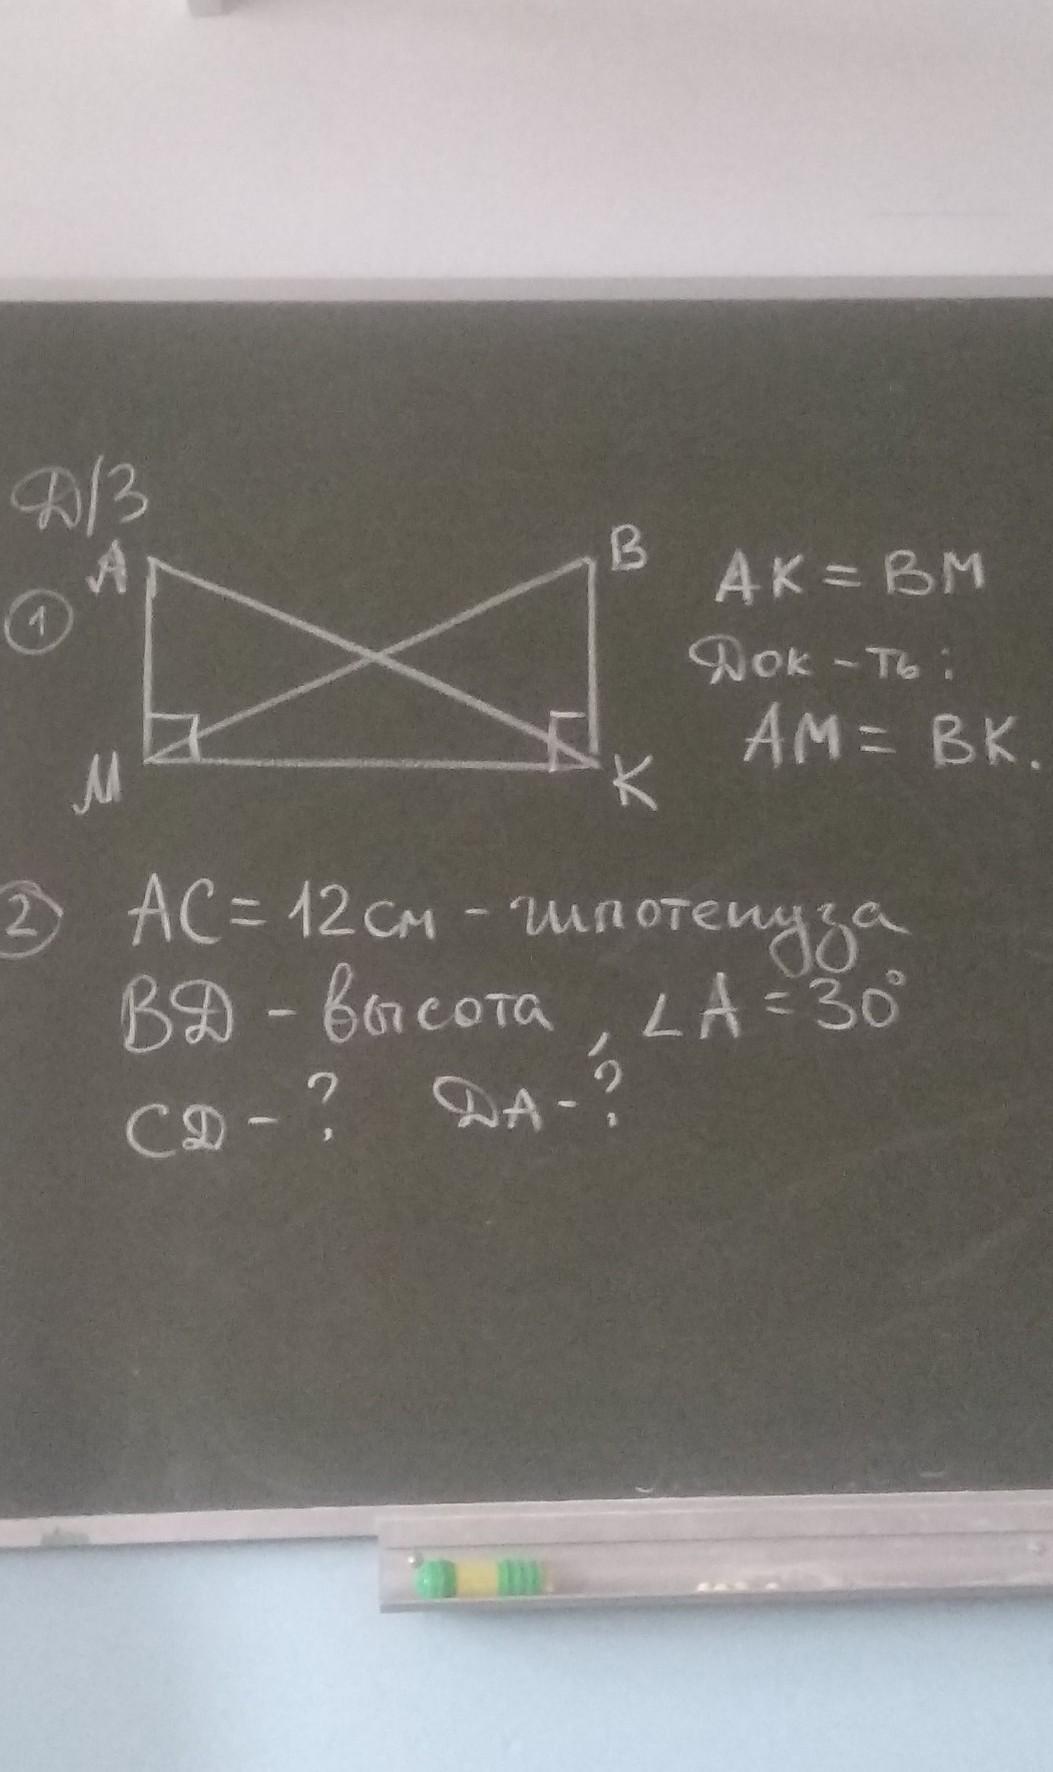 Д/З
A
B
1
M
K
AK = BM
Док-ть:
AM = BK.
2
AC = 12см - гипотенуза
BD - высота, ∠A = 30°
CD - ? DA - ?